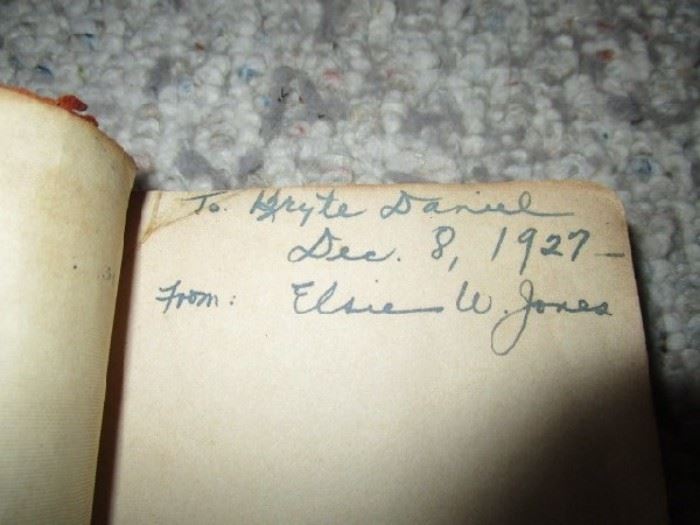 To: Daniel
Dec. 8, 1927 —
From: Elsie W. Jones